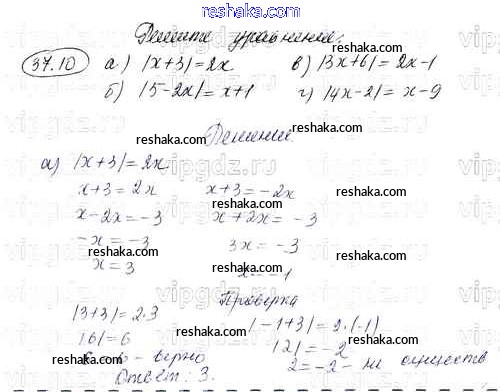 Решите уравнение:
37.10 а) |x+3|=2x в) |3x+6|=2x-1
б) |5-2x|=x+1 г) |4x-2|=x-9
Решение.
а) |x+3|=2x
x+3=2x x+3=-2x
x-2x=-3 x+2x=-3
-x=-3 3x=-3
x=3 x=-1
Проверка
|3+3|=2·3 |-1+3|=2·(-1)
|6|=6 |2|=-2
6=6 - верно 2=-2 - не существ
Ответ: 3.
reshaka.com
vipgdz.ru